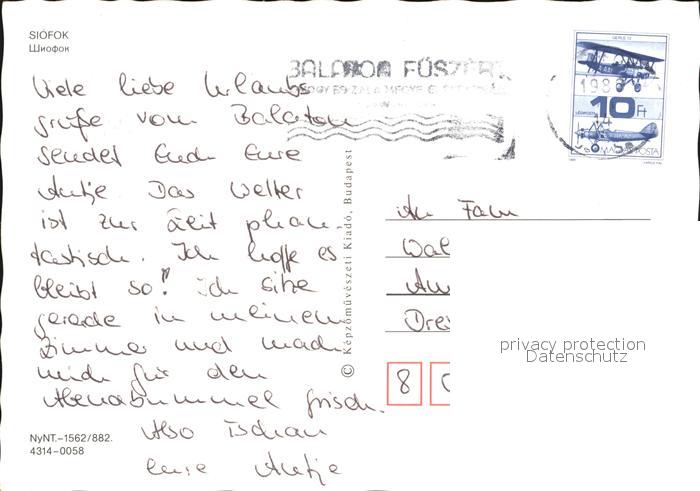 SIÓFOK
Шиофок
Viele liebe Urlaubs
grüße vom Balaton
sendet Euch Eure
Antje Das Wetter
ist zur Zeit phan-
tastisch. Ich hoffe es
bleibt so! Ich sitze
gerade in meinem
Zimmer und mach
mich für den
Abendbummel frisch.
Also tschau
eure Antje
NyNT.–1562/882.
4314–0058
© Képzőművészeti Kiadó, Budapest
BALATON FŰSZÉRT
198
10 Ft
MAGYAR POSTA
An Fam
Wal
Am
Dres
8
privacy protection
Datenschutz